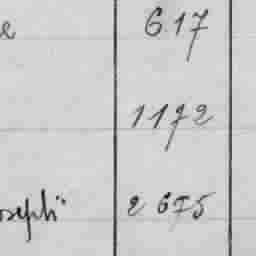 e 617
1172
oseph" 2675